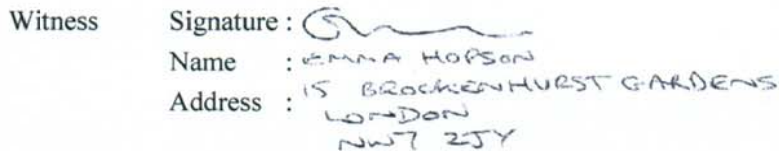 Witness Signature :
Name : EMMA HOPSON
Address : 15 BROCKENHURST GARDENS
LONDON
NW7 2JY